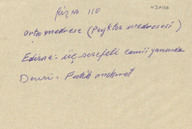 110
orta medrese (Peykler medresesi)
Edirne: üç şerefeli camii yanında
Devri: Fatih